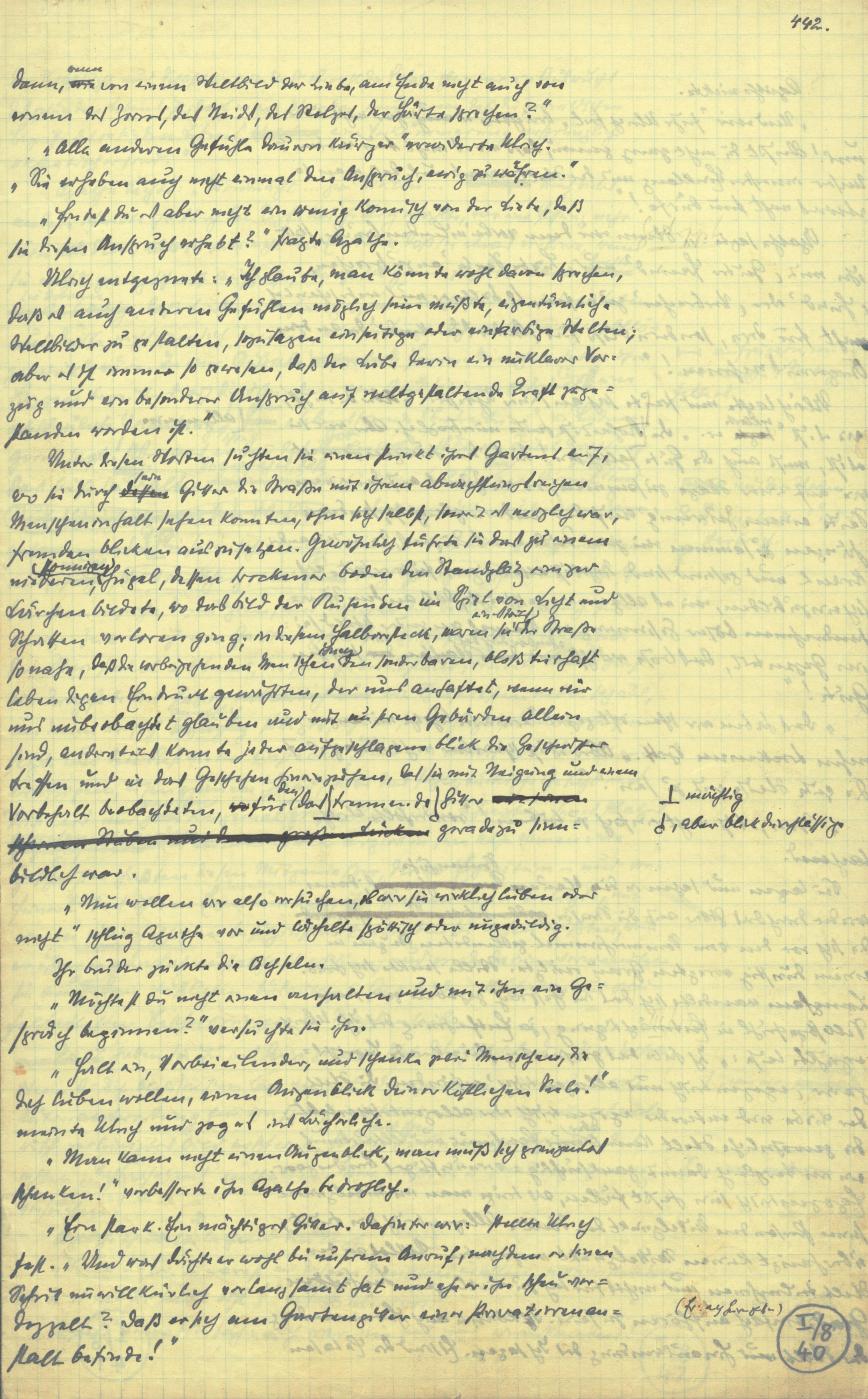 442.
dann, wenn von einem Weltbild der Liebe, am Ende nicht auch von
einem des Zornes, des Neids, des Stolzes, der Härte sprechen?"
„Alle anderen Gefühle dauern kürzer" erwiderte Ulrich.
„Sie erheben auch nicht einmal den Anspruch, ewig zu währen."
„Findest du es aber nicht ein wenig komisch von der Liebe, daß
sie diesen Anspruch erhebt?" fragte Agathe.
Ulrich entgegnete: „Ich glaube, man könnte wohl davon sprechen,
daß es auch anderen Gefühlen möglich sein müßte, eigentümliche
Weltbilder zu gestalten, sozusagen einseitige oder einfarbige Welten;
aber es ist immer so gewesen, daß der Liebe darin ein unklarer Vor-
zug und ein besonderer Anspruch auf weltgestaltende Kraft zuge-
standen worden ist."
Unter diesen Worten suchten sie einen Punkt ihres Gartens auf,
wo sie durch dessen Gitter die Straße mit ihrem abwechslungsreichen
Menscheninhalt sehen konnten, ohne sich selbst, soweit es möglich war,
fremden Blicken auszusetzen. Gewöhnlich führte sie das zu einem
niederen, sonnigen Hügel, dessen trockener Boden den Standplatz einiger
Lärchen bildete, wo das Bild der Ruhenden im Spiel von Licht und
Schatten verloren ging; in diesem Halbversteck, waren sie einerseits der Straße
so nahe, daß die vorbeigehenden Menschen ihnen den sonderbaren, bloß tierhaft
lebendigen Eindruck gewährten, der uns anhaftet, wenn wir
uns unbeobachtet glauben und mit unseren Gebärden allein
sind, anderseits konnte jeder aufgeschlagene Blick die Geschwister
treffen und in das Geschehen hineinziehen, das sie mit Neigung und einem
Vorbehalt beobachteten, für den das trennende Gitter
geradezu sinn-
bildlich war.
⊥ mächtig
, aber blickdurchlässige
„Nun wollen wir also versuchen, ob wir sie wirklich lieben oder
nicht" schlug Agathe vor und lächelte spöttisch oder ungeduldig.
Ihr Bruder zuckte die Achseln.
„Möchtest du nicht einen anhalten und mit ihm ein Ge-
spräch beginnen?" versuchte sie ihn.
„Halt an, Vorbeieilender, und schenke zwei Menschen, die
dich lieben wollen, einen Augenblick deiner köstlichen Seele!"
meinte Ulrich und zog es ins Lächerliche.
„Man kann nicht einen Augenblick, man muß sich grenzenlos
schenken!" verbesserte ihn Agathe bedrohlich.
„Ein Park. Ein mächtiges Gitter. Dahinter wir:" stellte Ulrich
fest. „Und was dächte er wohl bei unsrem Anruf, nachdem er seinen
Schritt unwillkürlich verlangsamt hat und ehe er ihn scheu ver-
doppelt? Daß er sich am Gartengitter einer Privatirrenan-
stalt befinde!"
I/8
40